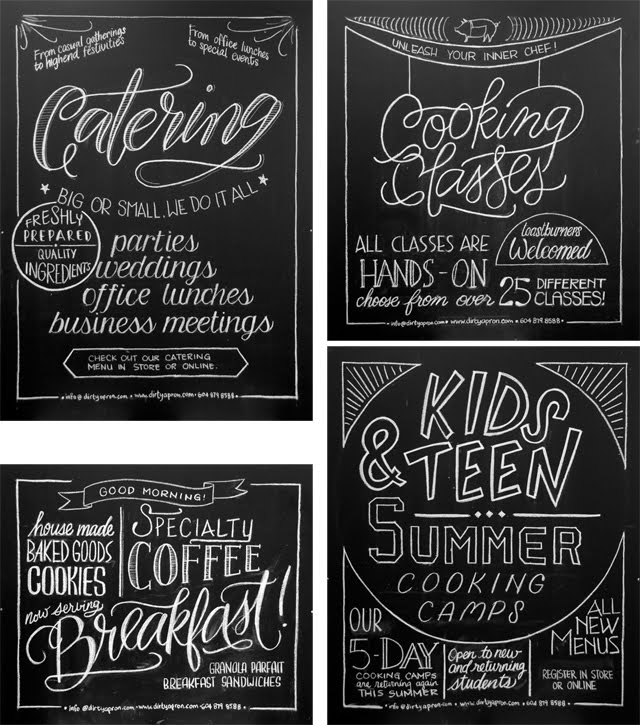 From casual gatherings
to highend festivities
From office lunches
to special events
Catering
BIG OR SMALL, WE DO IT ALL
FRESHLY
PREPARED
QUALITY
INGREDIENTS
parties
weddings
office lunches
business meetings
CHECK OUT OUR CATERING
MENU IN STORE OR ONLINE.
info@dirtyapron.com • www.dirtyapron.com • 604 879 8588
UNLEASH YOUR INNER CHEF!
Cooking
Classes
ALL CLASSES ARE
HANDS-ON
choose from over
toastburners
Welcomed
25 DIFFERENT
CLASSES!
info@dirtyapron.com • www.dirtyapron.com • 604 879 8588
GOOD MORNING!
house made
BAKED GOODS
COOKIES
SPECIALTY
COFFEE
now serving
Breakfast!
GRANOLA PARFAIT
BREAKFAST SANDWICHES
info@dirtyapron.com • www.dirtyapron.com • 604 879 8588
KIDS
& TEEN
SUMMER
COOKING
CAMPS
OUR
5-DAY
COOKING CAMPS
are returning again
THIS SUMMER
Open to new
and returning
students
ALL
NEW
MENUS
REGISTER IN STORE
OR ONLINE
info@dirtyapron.com • www.dirtyapron.com • 604 879 8588